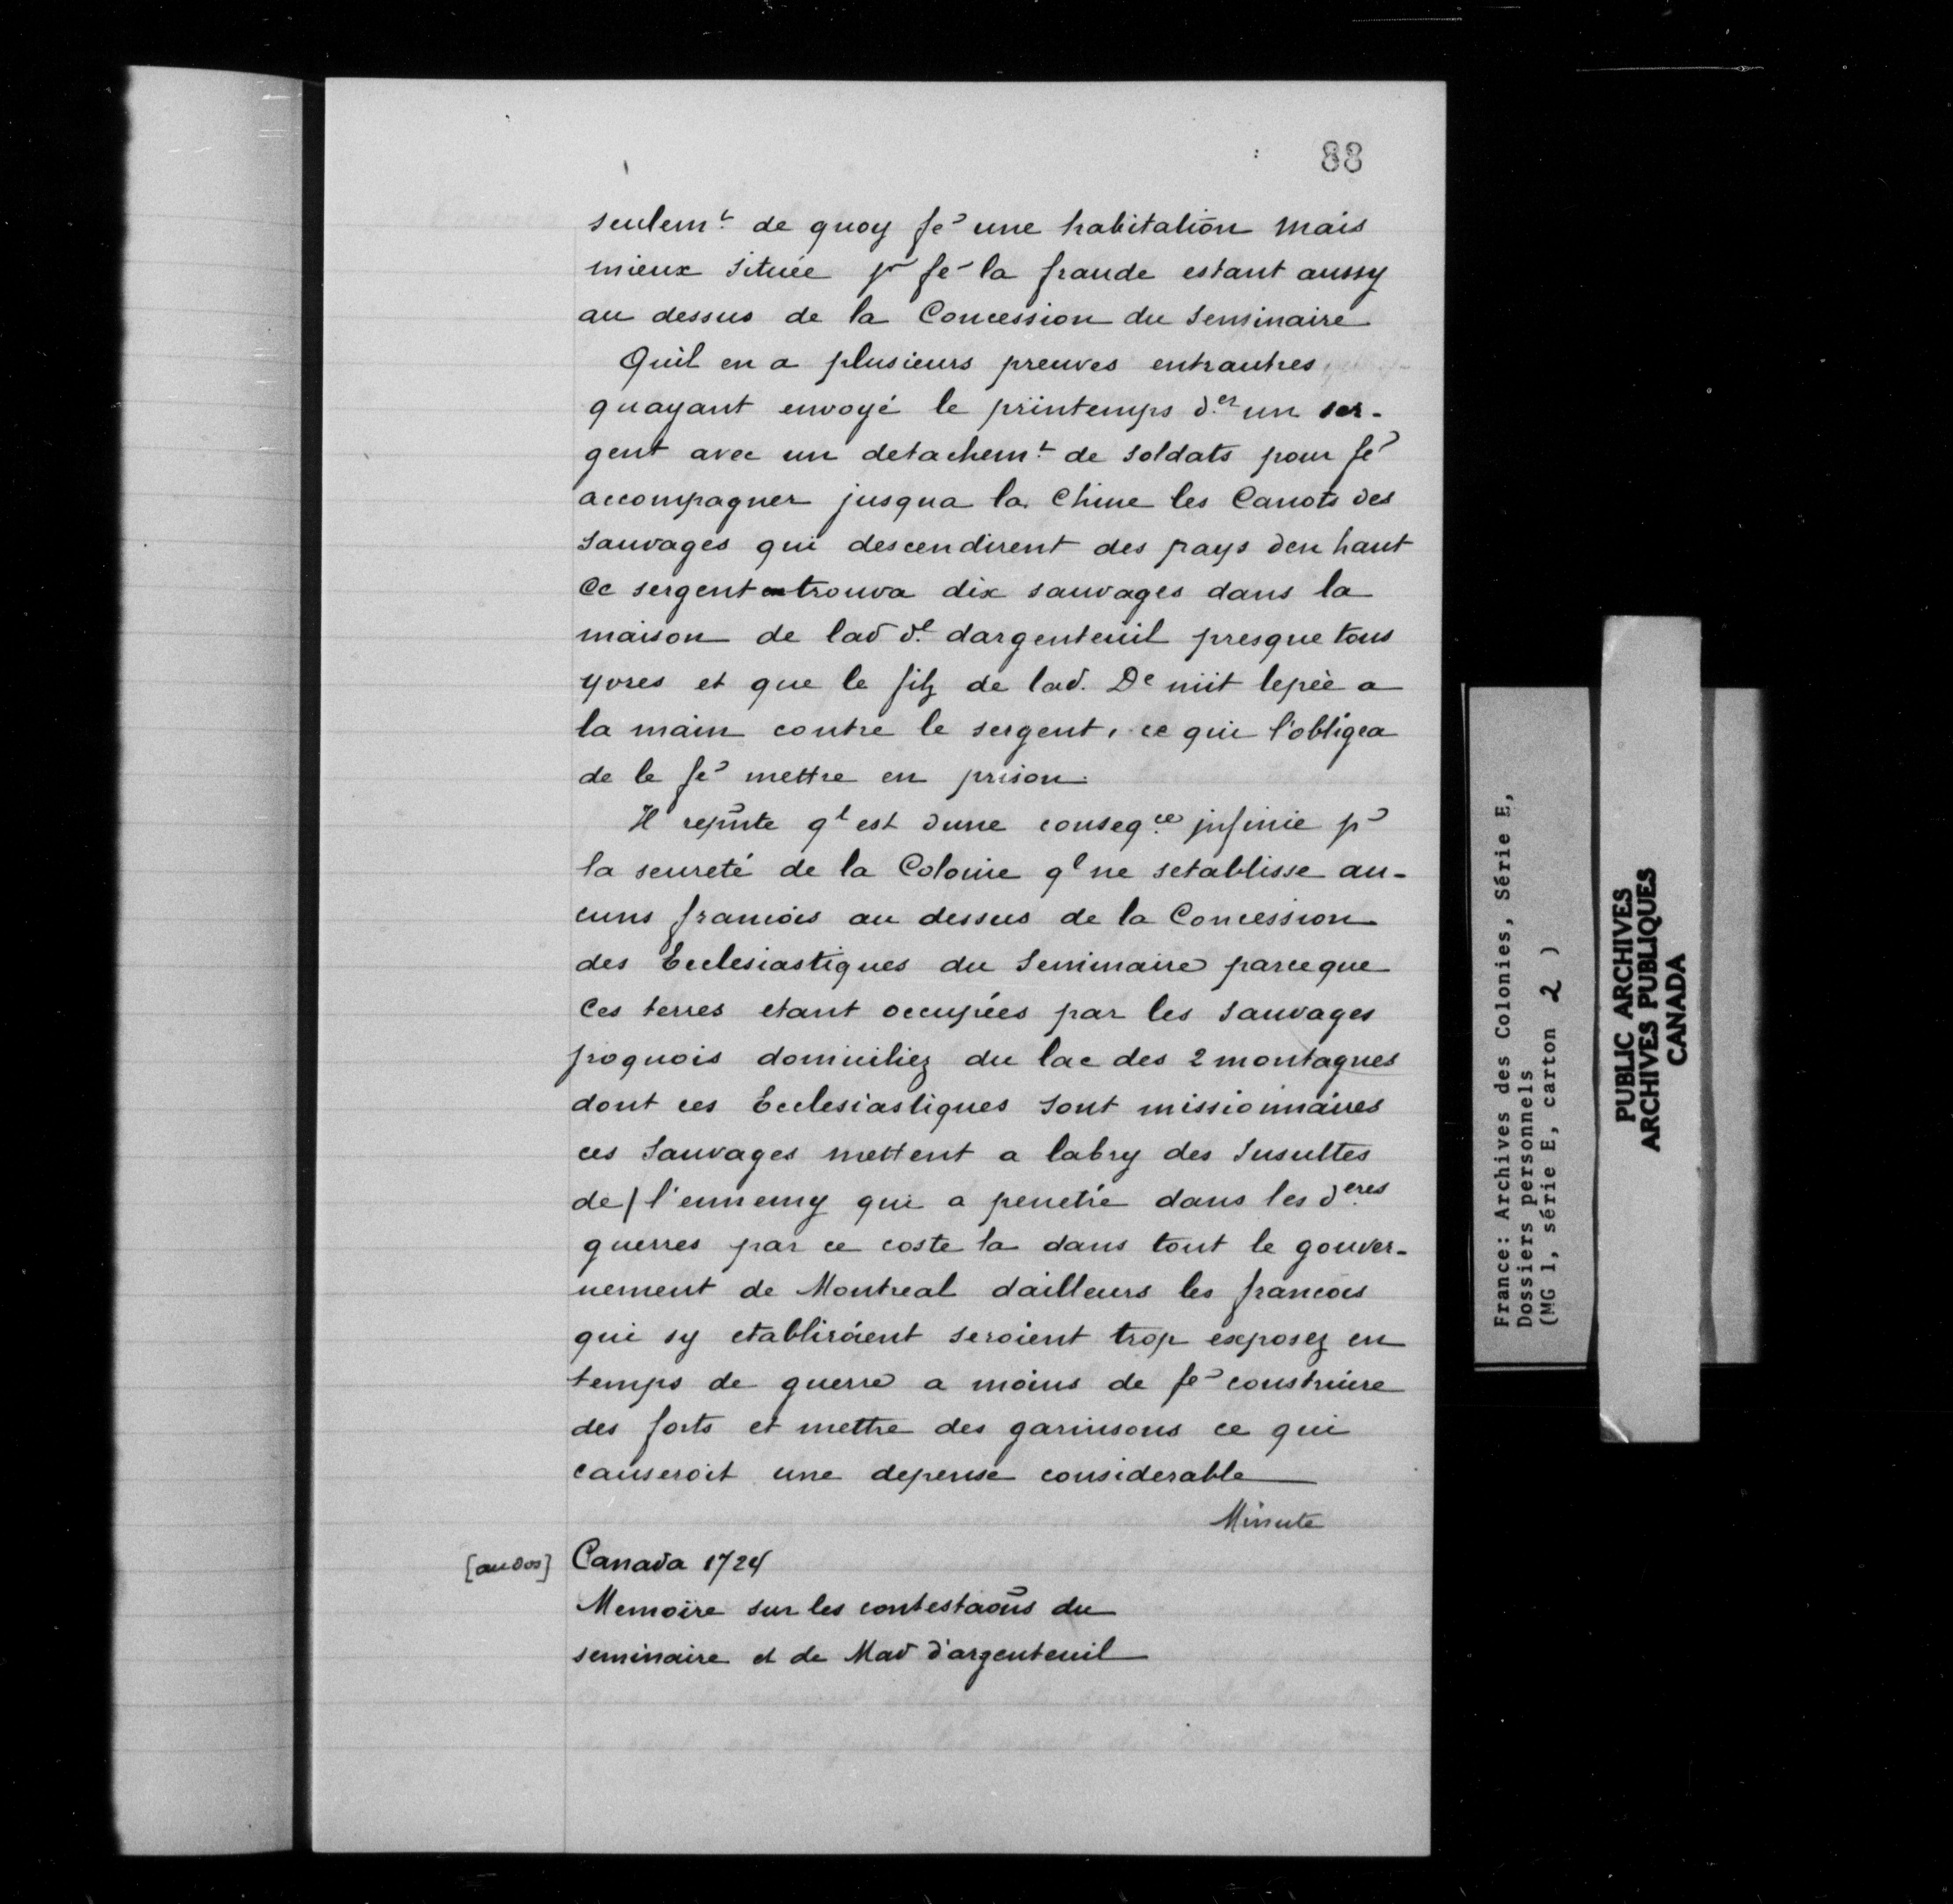 88
seulem.t de quoy fe une habitation mais
mieux située pr fe la fraude estant aussy
au dessus de la Concession du Seminaire
Qu'il en a plusieurs preuves entrautres
quayant envoyé le printemps d.er un ser-
gent avec un detachem.t de soldats pour fe
accompagner jusqua la Chine les Canots des
Sauvages qui descendirent des pays den haut
Ce sergent trouva dix sauvages dans la
maison de lad d.e dargenteuil presque tous
yvres et que le filz de lad. De mit lepée a
la main contre le sergent, ce qui l'obligea
de le fe mettre en prison.
Il repnte ql est dune conseq.ce jnfinie pr
la seureté de la Colonie ql ne setablisse au-
cuns francois au dessus de la Concession
des Ecclesiastiques du Seminaire parceque
Ces terres etant occupées par les Sauvages
jroquois domiciliez du lac des 2 montagnes
dont ces Ecclesiastiques sont missionnaires
ces Sauvages mettent a labry des Insultes
de l'ennemy qui a penetré dans les d.eres
guerres par ce coste la dans tout le gouver-
nement de Montreal dailleurs les francois
qui sy etabliroient seroient trop exposez en
temps de guerre a moins de fe construire
des forts et mettre des garnisons ce qui
causeroit une depense considerable
Minute
[au dos] Canada 1724
Memoire sur les contestaons du
seminaire et de Mad d'argenteuil
France: Archives des Colonies, Série E,
Dossiers personnels
(MG 1, série E, carton 2 )
PUBLIC ARCHIVES
ARCHIVES PUBLIQUES
CANADA